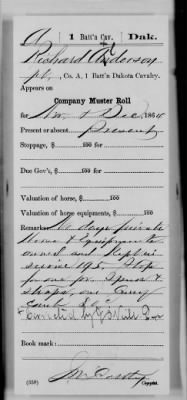 A | 1 Batt'n Cav. | Dak.
Richard Anderson
pt., Co. A, 1 Batt'n Dakota Cavalry.
Appears on
Company Muster Roll
for Nov & Dec, 1864
Present or absent, Present
Stoppage, $ 100 for
Due Gov't, $ 100 for
Valuation of horse, $ 100
Valuation of horse equipments, $ 100
Remarks: days private
Horse & Equipments
owned and kept in
service Stop
for one pr Spurs &
straps, one Curry
comb
Book mark:
(358) Copyist.